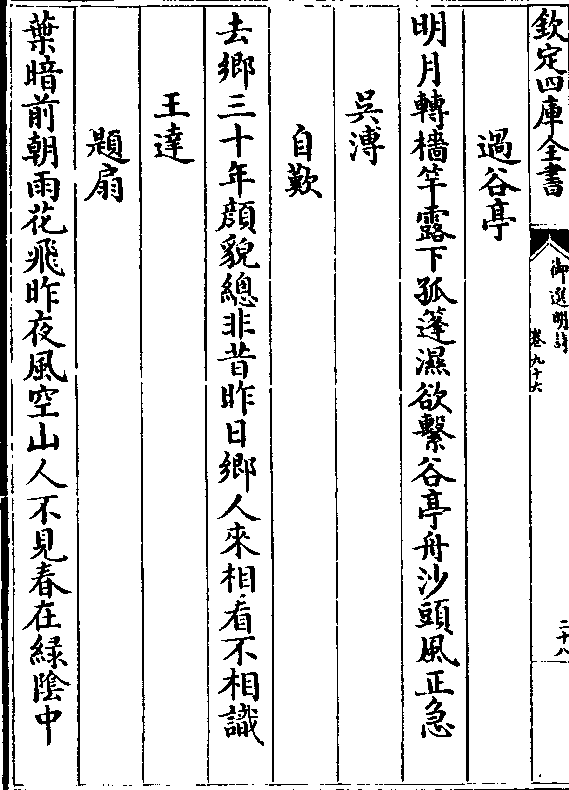 欽定四庫全書
御選明詩
卷九十六
二十八
過谷亭
明月轉檣竿露下孤篷濕欲繫谷亭舟沙頭風正急
吳溥
自歎
去鄉三十年顔貌總非昔昨日鄉人來相看不相識
王達
題扇
葉暗前朝雨花飛昨夜風空山人不見春在綠陰中